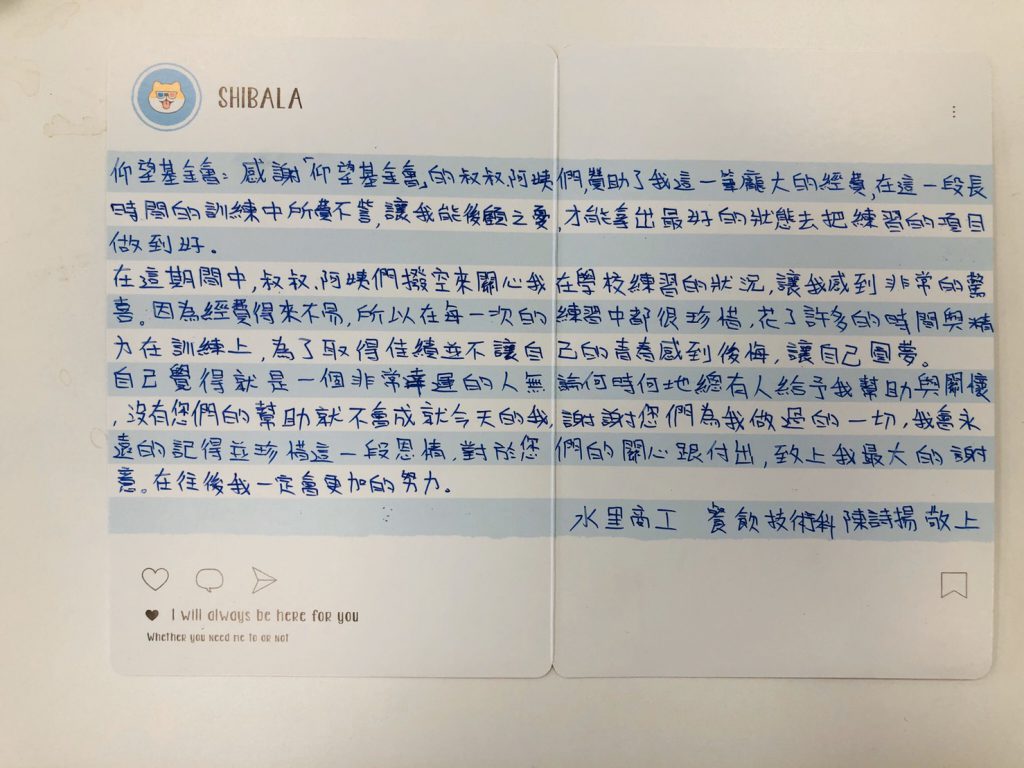 SHIBALA
仰望基金會：感謝「仰望基金會」的叔叔、阿姨們，贊助了我這一筆龐大的經費，在這一段長
時間的訓練中所費不訾，讓我能後顧之憂，才能拿出最好的狀態去把練習的項目
做到好。
在這期間中，叔叔、阿姨們撥空來關心我在學校練習的狀況，讓我感到非常的驚
喜。因為經費得來不易，所以在每一次的練習中都很珍惜，花了許多的時間與精
力在訓練上，為了取得佳績並不讓自己的青春感到後悔，讓自己圓夢。
自己覺得就是一個非常幸運的人無論何時何地總有人給予我幫助與關懷
，沒有您們的幫助就不會成就今天的我，謝謝您們為我做過的一切，我會永
遠的記得並珍惜這一段恩情，對於您們的關心跟付出，致上我最大的謝
意。在往後我一定會更加的努力。
水里商工 餐飲技術科 陳詩揚 敬上
I will always be here for you
Whether you need me to or not